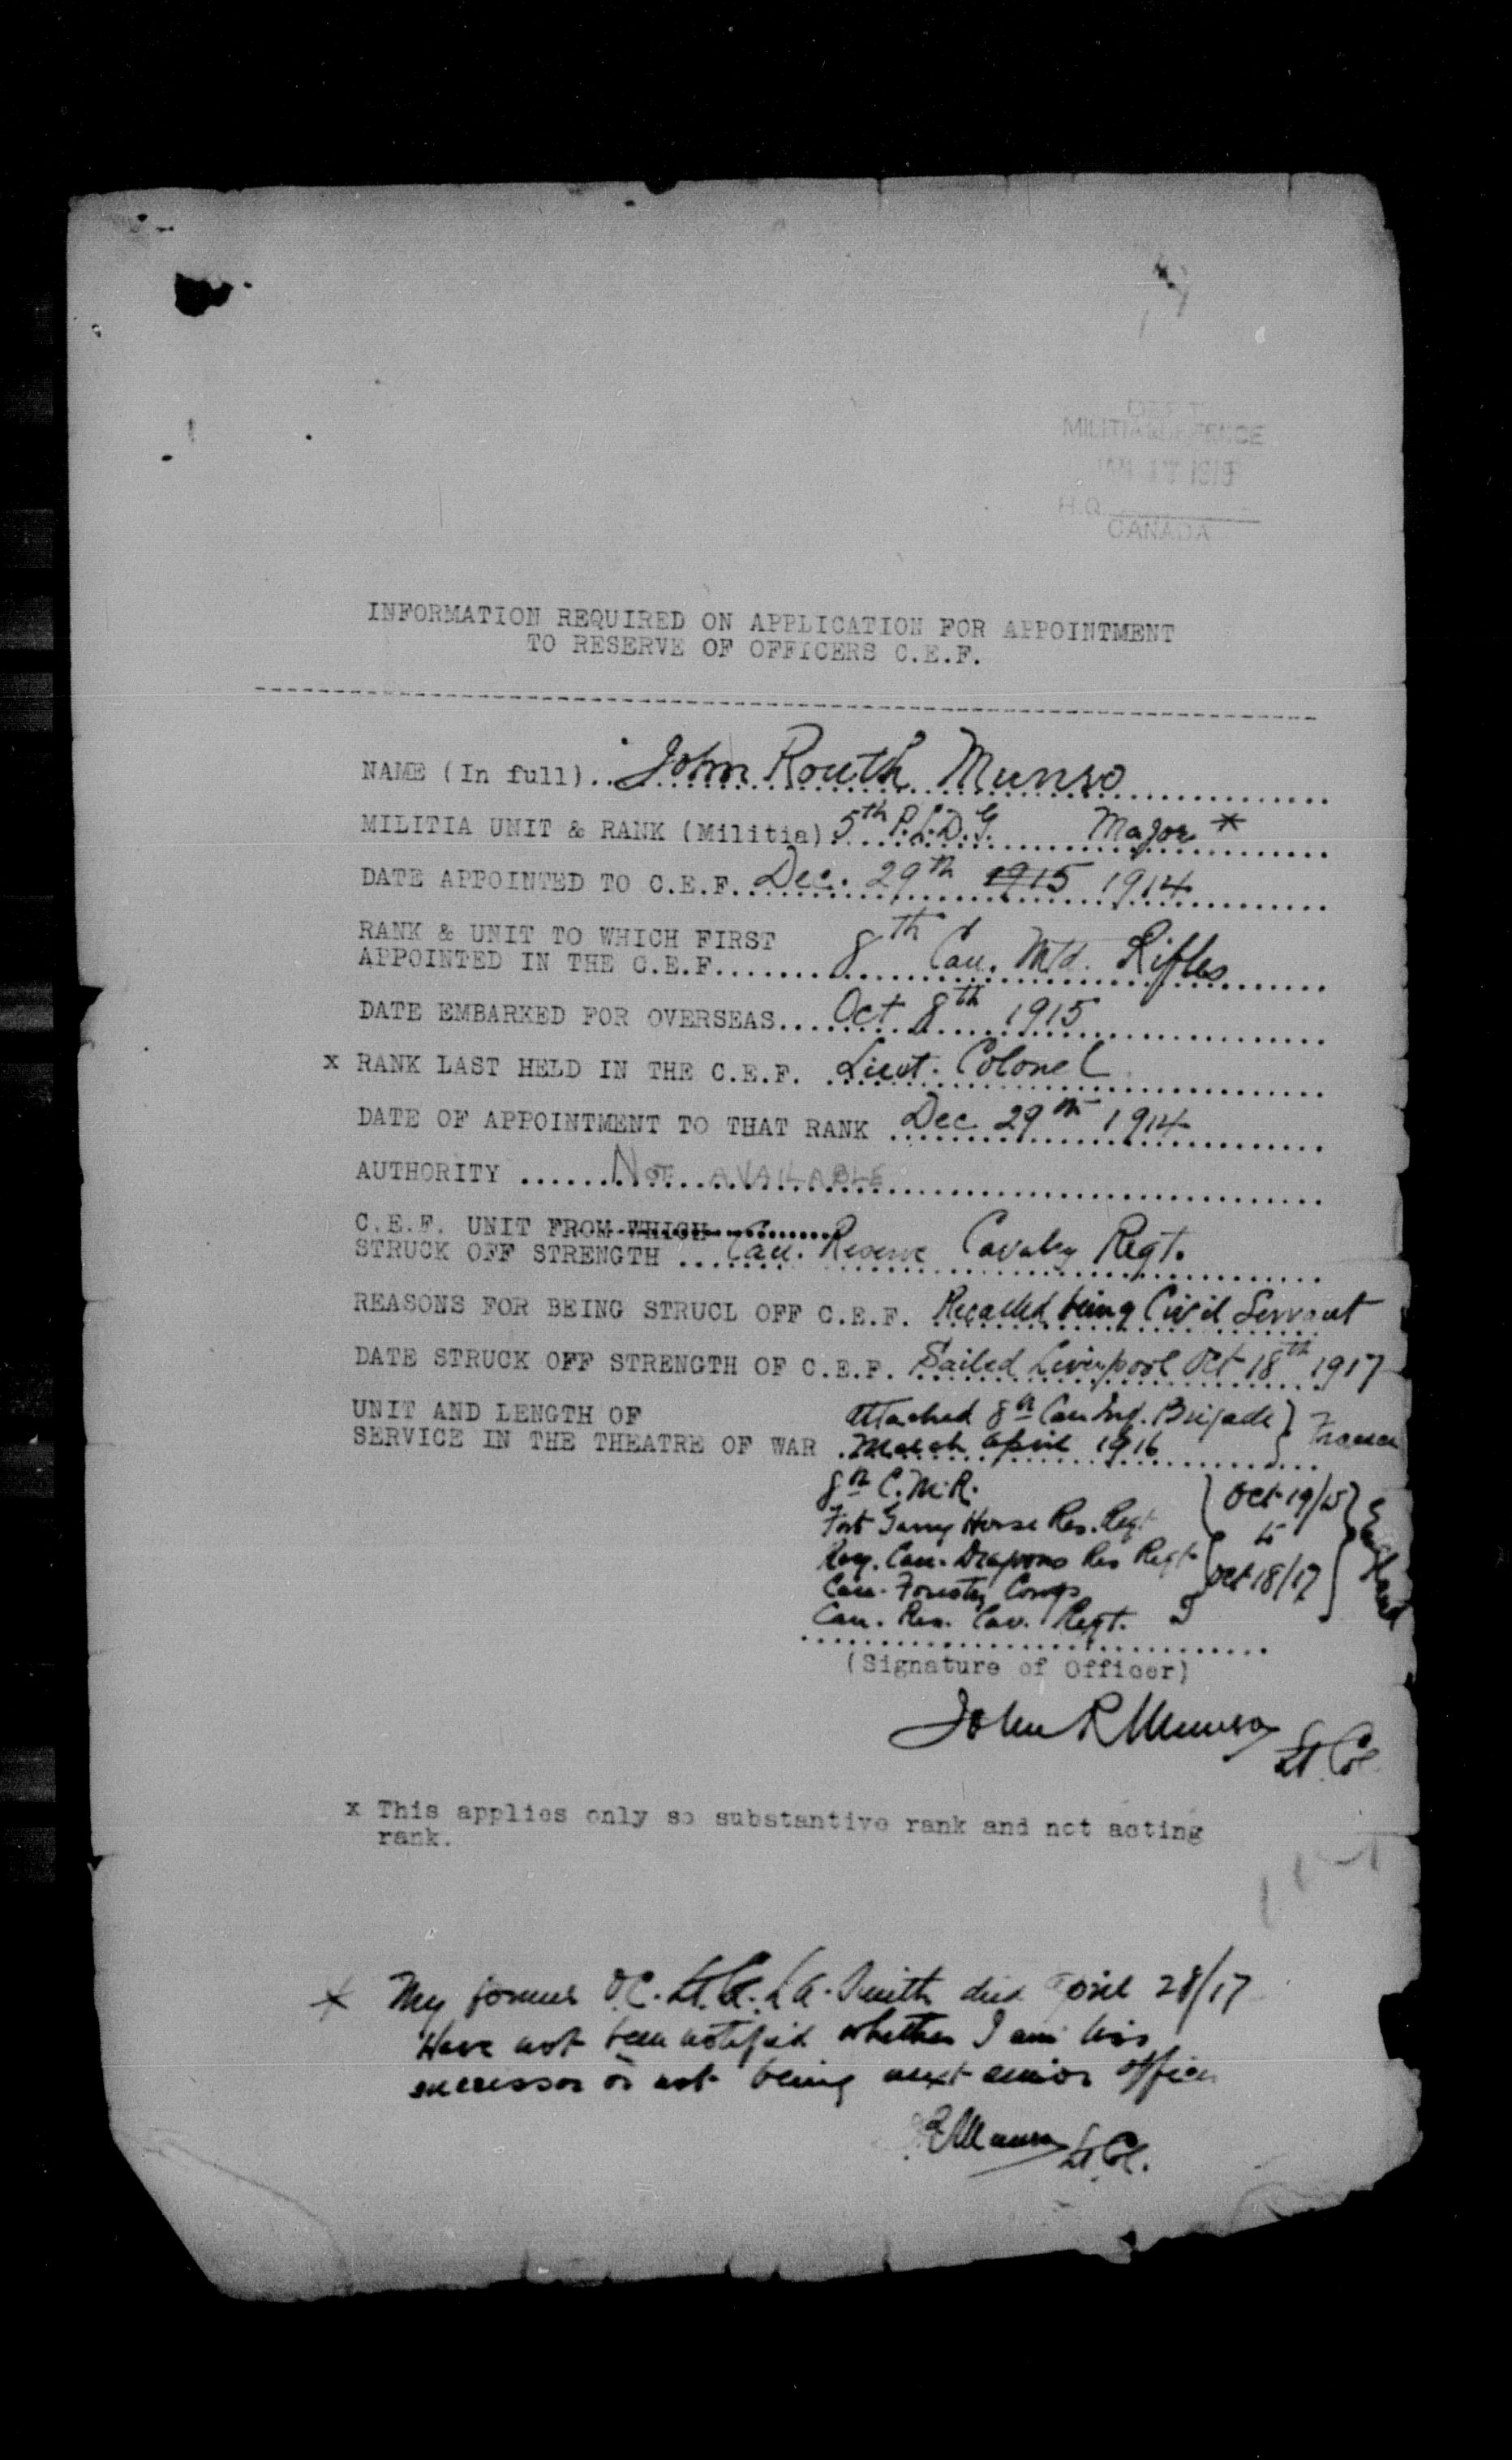 DEPT.
MILITIA & DEFENCE
JAN 17 1919
H.Q.
CANADA
INFORMATION REQUIRED ON APPLICATION FOR APPOINTMENT
TO RESERVE OF OFFICERS C.E.F.
NAME (In full).. John Routh Munro
MILITIA UNIT & RANK (Militia) 5th P.L.D.G. Major *
DATE APPOINTED TO C.E.F. Dec. 29th 1915 1914
RANK & UNIT TO WHICH FIRST
APPOINTED IN THE C.E.F. 8th Can. Mtd. Rifles
DATE EMBARKED FOR OVERSEAS... Oct 8th 1915
x RANK LAST HELD IN THE C.E.F. Lieut. Colonel
DATE OF APPOINTMENT TO THAT RANK Dec 29th 1914
AUTHORITY ...... NOT AVAILABLE
C.E.F. UNIT FROM WHICH
STRUCK OFF STRENGTH ... Can. Reserve Cavalry Regt.
REASONS FOR BEING STRUCL OFF C.E.F. Recalled being Civil Servant
DATE STRUCK OFF STRENGTH OF C.E.F. Sailed Liverpool Oct 18th 1917
UNIT AND LENGTH OF attached 8th Can Inf. Brigade } France
SERVICE IN THE THEATRE OF WAR . March April 1916
8th C.M.R. Oct 19/15
Fort Garry Horse Res. Regt to
Roy. Can. Dragoons Res Regt Oct 18/17 England
Can. Forestry Corps
Can. Res. Cav. Regt.
(Signature of Officer)
John R Munro
Lt. Col
x This applies only so substantive rank and not acting
rank.
* My former O.C. Lt. Col. Smith died April 28/17
Have not been notified whether I am his
successor or not being next senior officer
JRMunro Lt. Col.